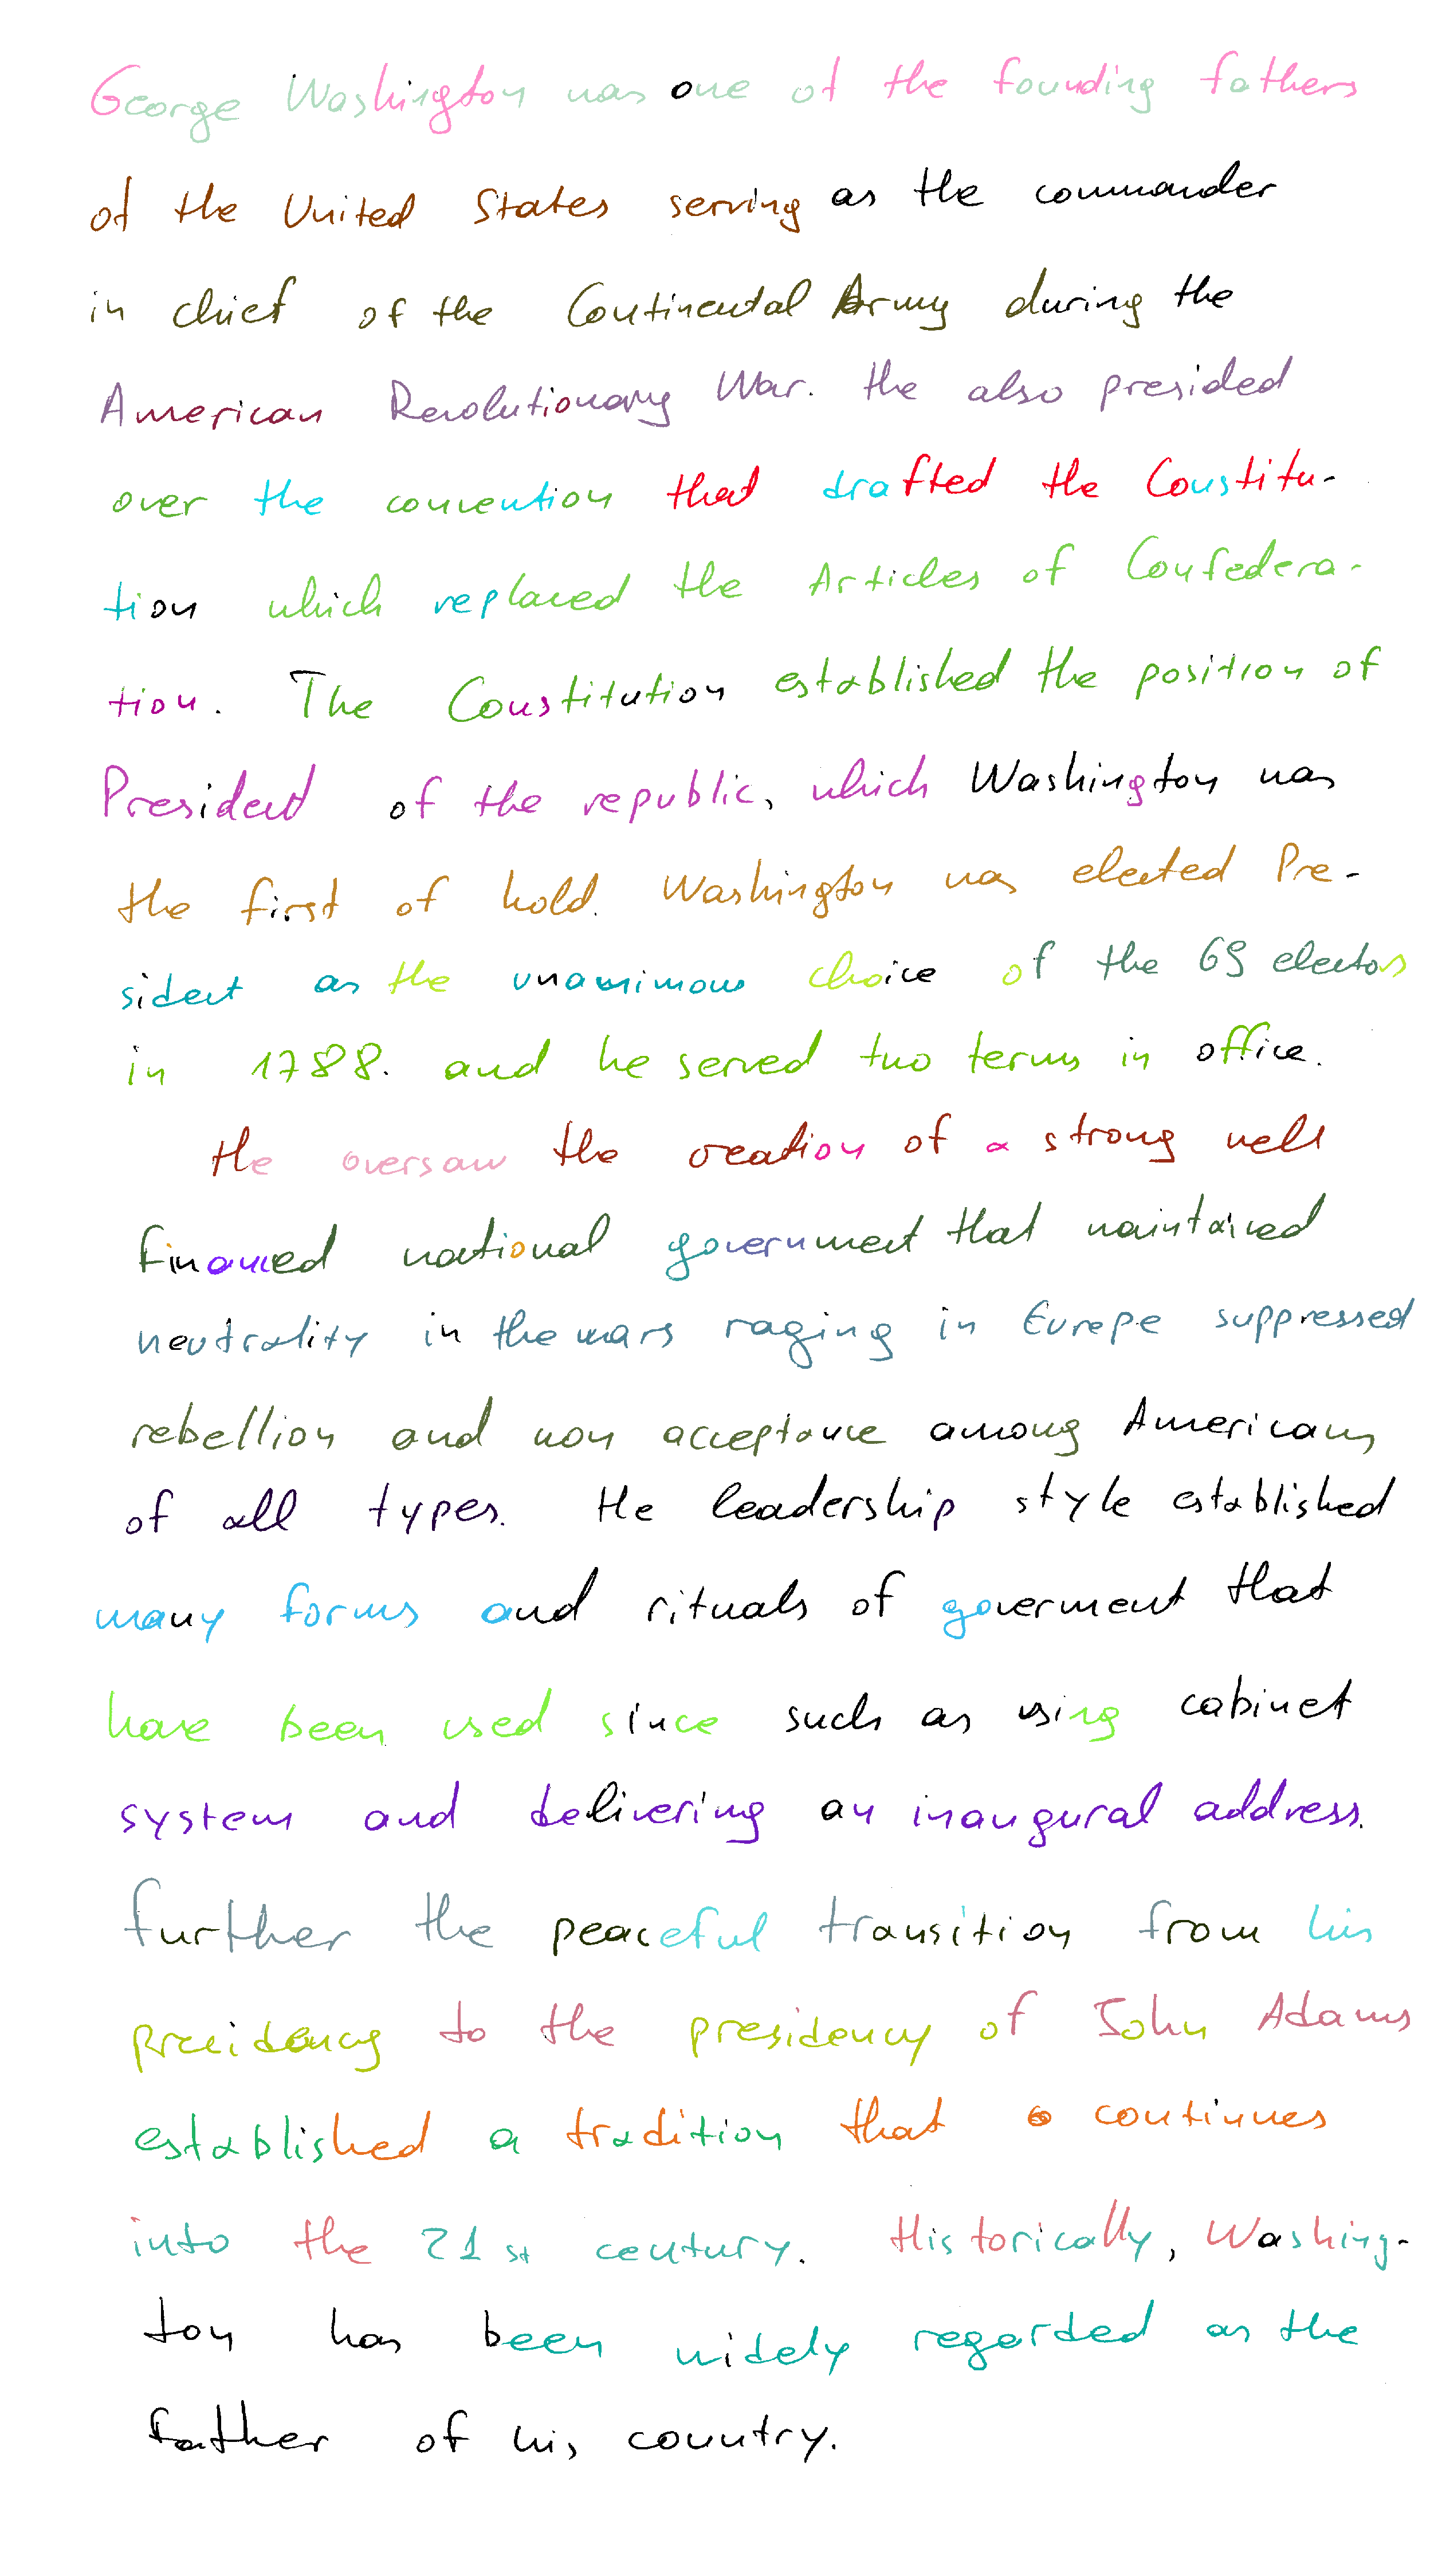 George Washington was one of the founding fathers
of the United States serving as the commander
in chief of the Continental Army during the
American Revolutionary War. He also presided
over the convention that drafted the Constitu-
tion which replaced the Articles of Confedera-
tion. The Constitution established the position of
President of the republic, which Washington was
the first of hold. Washington was elected Pre-
sident as the unanimous choice of the 69 electors
in 1788. and he served two terms in office.
He oversaw the creation of a strong well
financed national government that maintained
neutrality in the wars raging in Europe suppressed
rebellion and won acceptance among Americans
of all types. He leadership style established
many forms and rituals of goverment that
have been used since such as using cabinet
system and delivering an inaugural address.
further the peaceful transition from his
presidency to the presidency of John Adams
established a tradition that continues
into the 21st century. Historically, Washing-
ton has been widely regarded as the
father of his country.